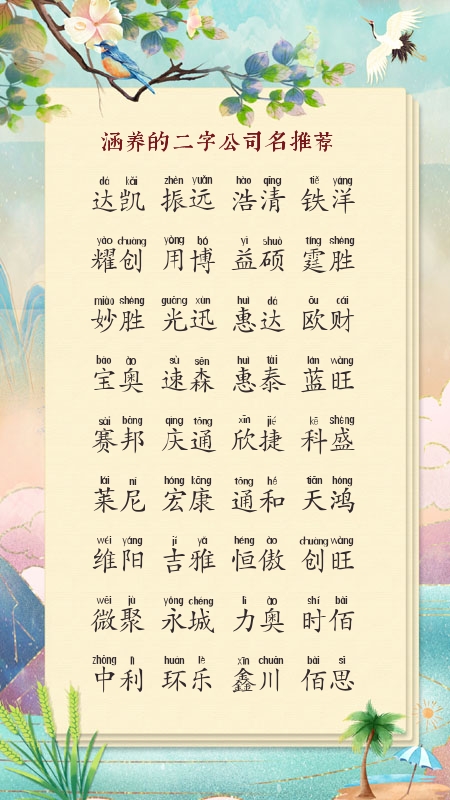 涵养的二字公司名推荐
dá kǎi zhèn yuǎn hào qīng tiě yáng
达凯 振远 浩清 铁洋
yào chuàng yòng bó yì shuò tíng shèng
耀创 用博 益硕 霆胜
miào shèng guāng xùn huì dá ōu cái
妙胜 光迅 惠达 欧财
bǎo ào sù sēn huì tài lán wàng
宝奥 速森 惠泰 蓝旺
sài bāng qìng tōng xīn jié kē shèng
赛邦 庆通 欣捷 科盛
lái ní hóng kāng tōng hé tiān hóng
莱尼 宏康 通和 天鸿
wéi yáng jí yǎ héng ào chuàng wàng
维阳 吉雅 恒傲 创旺
wēi jù yǒng chéng lì ào shí bǎi
微聚 永城 力奥 时佰
zhōng lì huán lè xīn chuān bǎi sī
中利 环乐 鑫川 佰思